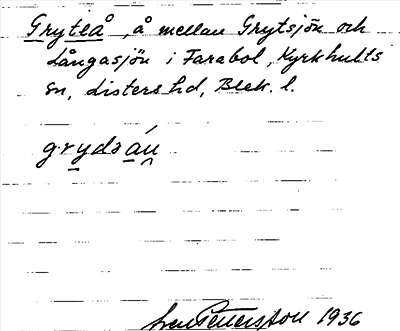 Gryteå, å mellan Grytsjön och
Långasjön i Farabol, Kyrkhults
sn, Listers hd, Blek. l.
grydsáu
Sven Pettersson 1936